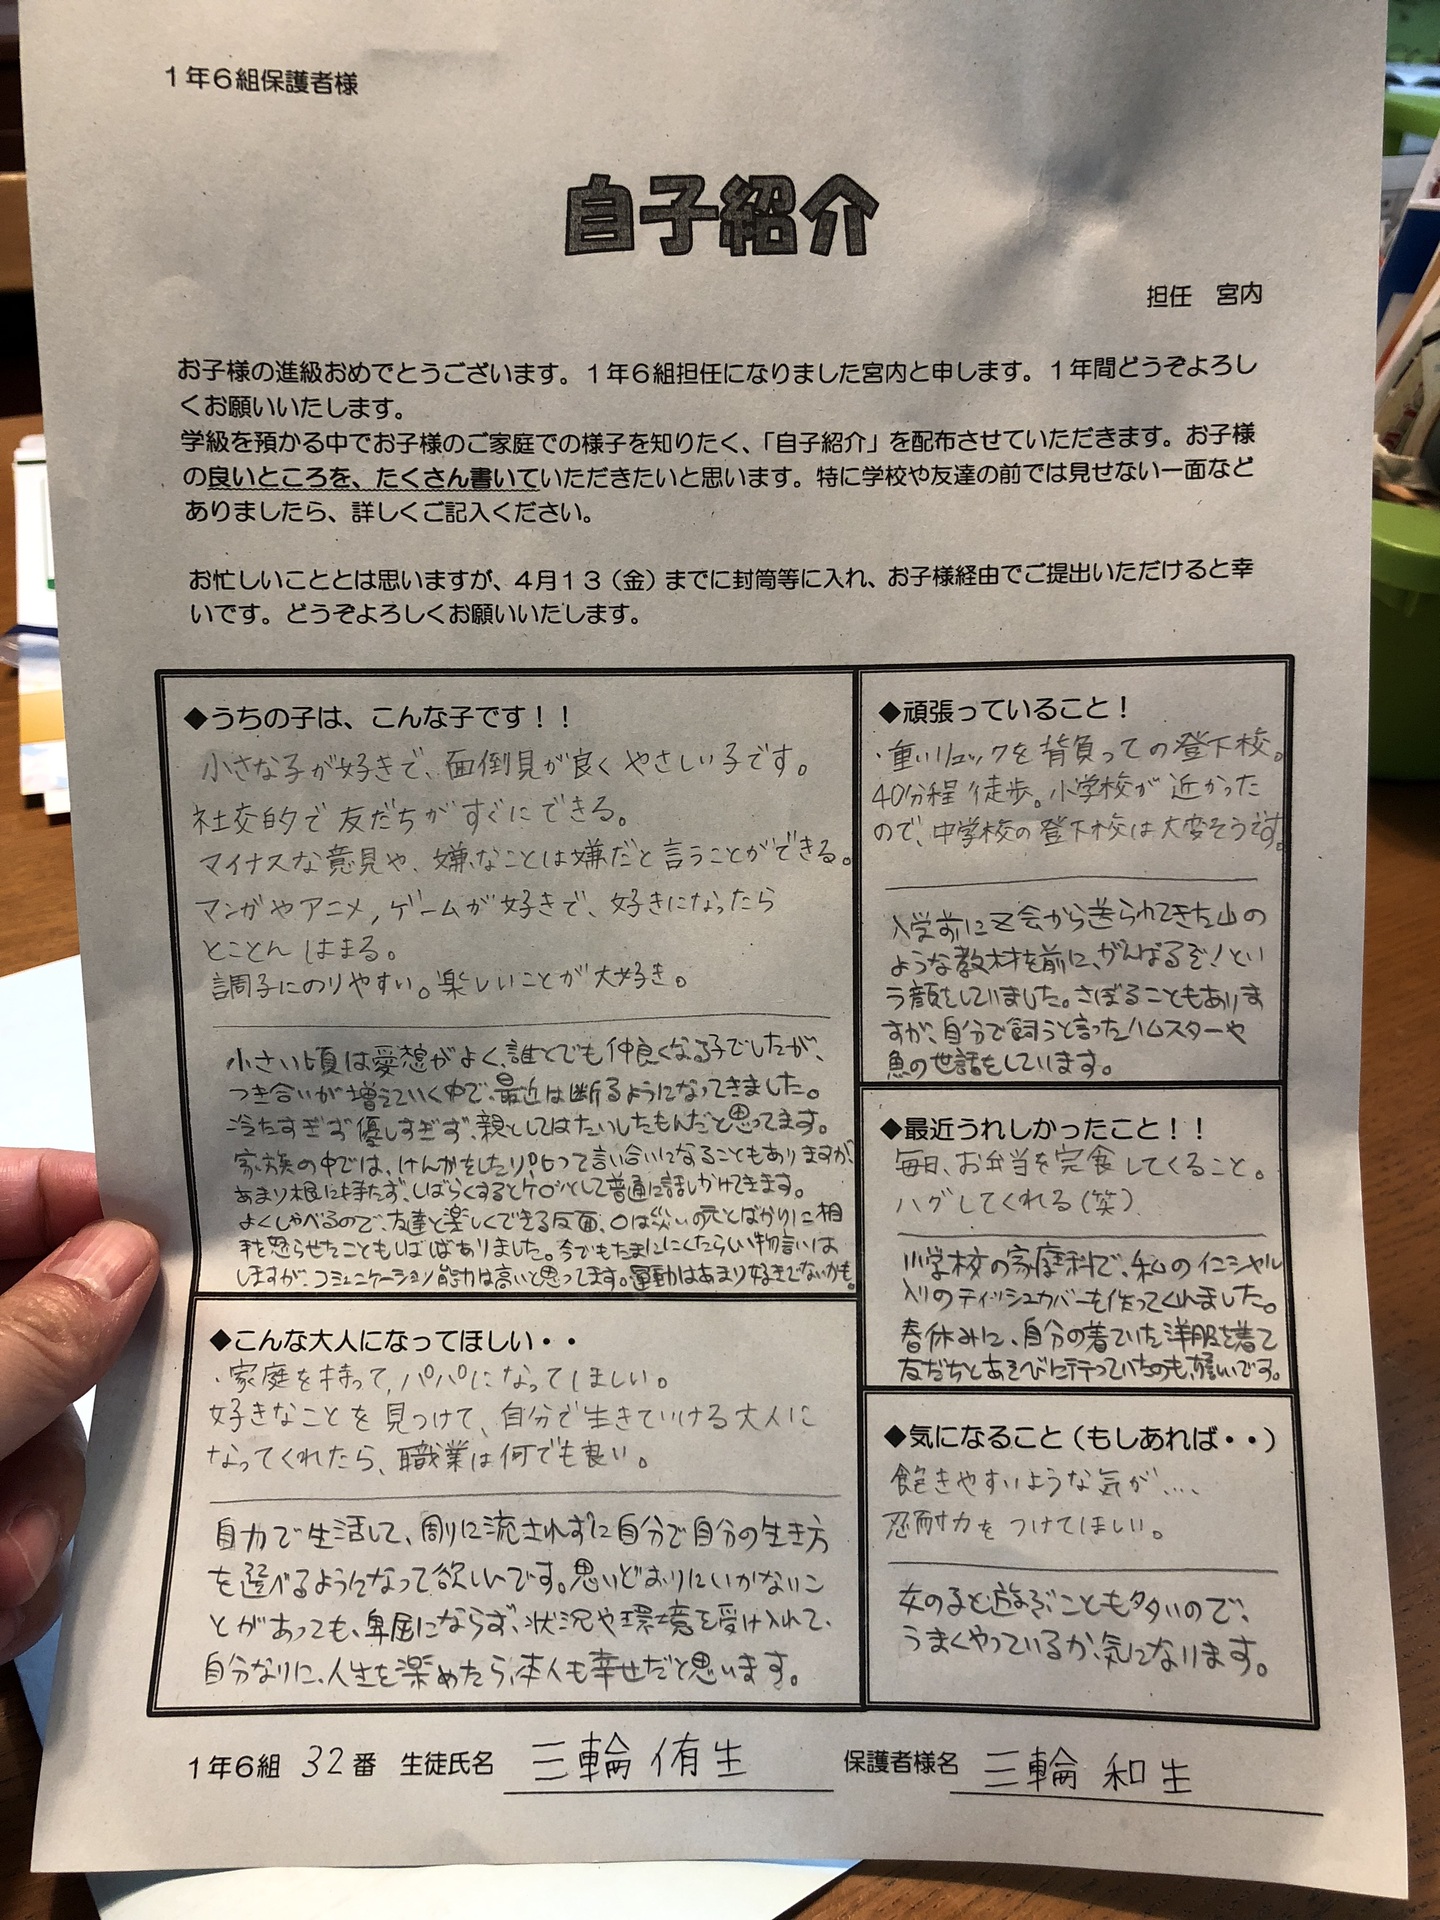 1年6組保護者様
自子紹介
担任 宮内
お子様の進級おめでとうございます。1年6組担任になりました宮内と申します。1年間どうぞよろし
くお願いいたします。
学級を預かる中でお子様のご家庭での様子を知りたく、「自子紹介」を配布させていただきます。お子様
の良いところを、たくさん書いていただきたいと思います。特に学校や友達の前では見せない一面など
ありましたら、詳しくご記入ください。
お忙しいこととは思いますが、4月13（金）までに封筒等に入れ、お子様経由でご提出いただけると幸
いです。どうぞよろしくお願いいたします。
◆うちの子は、こんな子です！！
小さな子が好きで、面倒見が良くやさしい子です。
社交的で友だちがすぐにできる。
マイナスな意見や、嫌なことは嫌だと言うことができる。
マンガやアニメ,ゲームが好きで、好きになったら
とことんはまる。
調子にのりやすい。楽しいことが大好き。
小さい頃は愛想がよく、誰とでも仲良くなる子でしたが、
つき合いが増えていく中で、最近は断るようになってきました。
冷たすぎず優しすぎず、親としてはたいしたもんだと思ってます。
家族の中では、けんかをしたり怒って言い合いになることもありますが、
あまり根に持たず、しばらくするとケロッとして普通に話しかけてきます。
よくしゃべるので、友達と楽しくできる反面、口は災いの元とばかりに相
手を怒らせたこともしばしばありました。今でもたまににくたらしい物言いは
しますが、コミュニケーション能力は高いと思ってます。運動はあまり好きでないかも。
◆こんな大人になってほしい・・
・家庭を持って,パパになってほしい。
好きなことを見つけて、自分で生きていける大人に
なってくれたら、職業は何でも良い。
自力で生活して、周りに流されずに自分で自分の生き方
を選べるようになって欲しいです。思いどおりにいかないこ
とがあっても、卑屈にならず、状況や環境を受け入れて、
自分なりに、人生を楽めたら、本人も幸せだと思います。
◆頑張っていること！
・重いリュックを背負っての登下校。
40分程徒歩。小学校が近かった
ので、中学校の登下校は大変そうです。
入学前にZ会から送られてきた山の
ような教材を前に、がんばるぞ！とい
う顔をしていました。さぼることもありま
すが、自分で飼うと言ったハムスターや
魚の世話をしています。
◆最近うれしかったこと！！
毎日、お弁当を完食してくること。
ハグしてくれる（笑）
小学校の家庭科で、私のイニシャル
入りのティッシュカバーを作ってくれました。
春休みに、自分の着ていた洋服を着て
友だちとあそびに行っていたのも、嬉いです。
◆気になること（もしあれば・・）
飽きやすいような気が….
忍耐力をつけてほしい。
女の子と遊ぶことも多いので、
うまくやっているか、気になります。
1年6組 32番 生徒氏名 三輪侑生 保護者様名 三輪和生